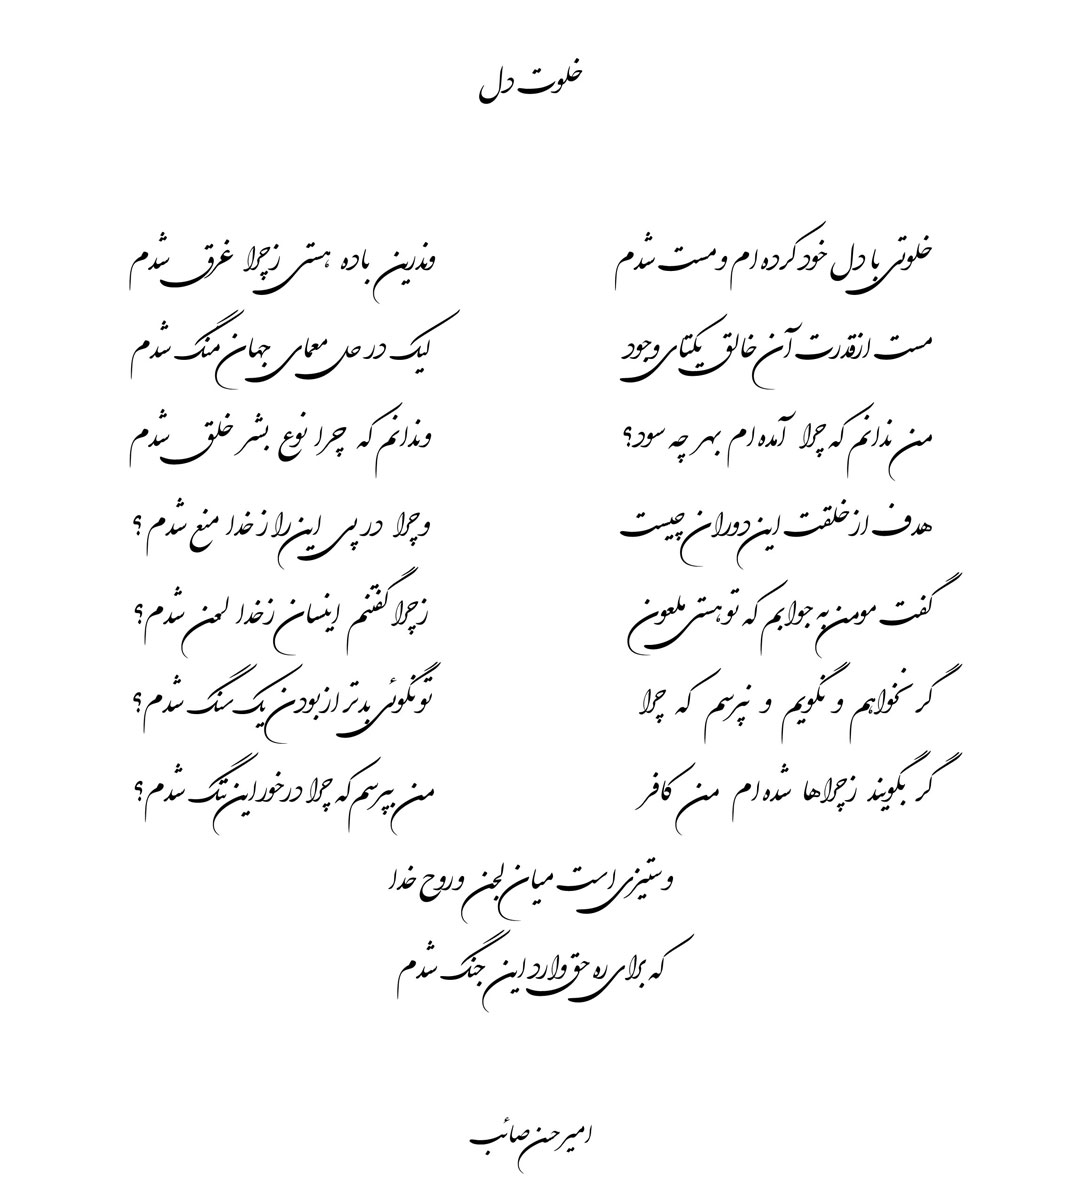 خلوت دل
خلوتی با دل خود کرده ام و مست شدم
وندرین باده هستی زچرا غرق شدم
مست ازقدرت آن خالق یکتای وجود
لیک در حل معمای جهان منگ شدم
من ندانم که چرا آمده ام بهر چه سود؟
وندانم که چرا نوع بشر خلق شدم
هدف از خلقت این دوران چیست
وچرا در پی این راز خدا منع شدم ؟
گفت مومن به جوابم که تو هستی ملعون
زچرا گفتنم اینسان زخدا لعن شدم؟
گر نخواهم و نگویم و نپرسم که چرا
تو نگوئی بدتر از بودن یک سنگ شدم ؟
گر بگویند زچراها شده ام من کافر
من بپرسم که چرا درخور این ننگ شدم؟
وستیزی است میان لجن وروح خدا
که برای ره حق وارد این جنگ شدم
امیرحسن صائب